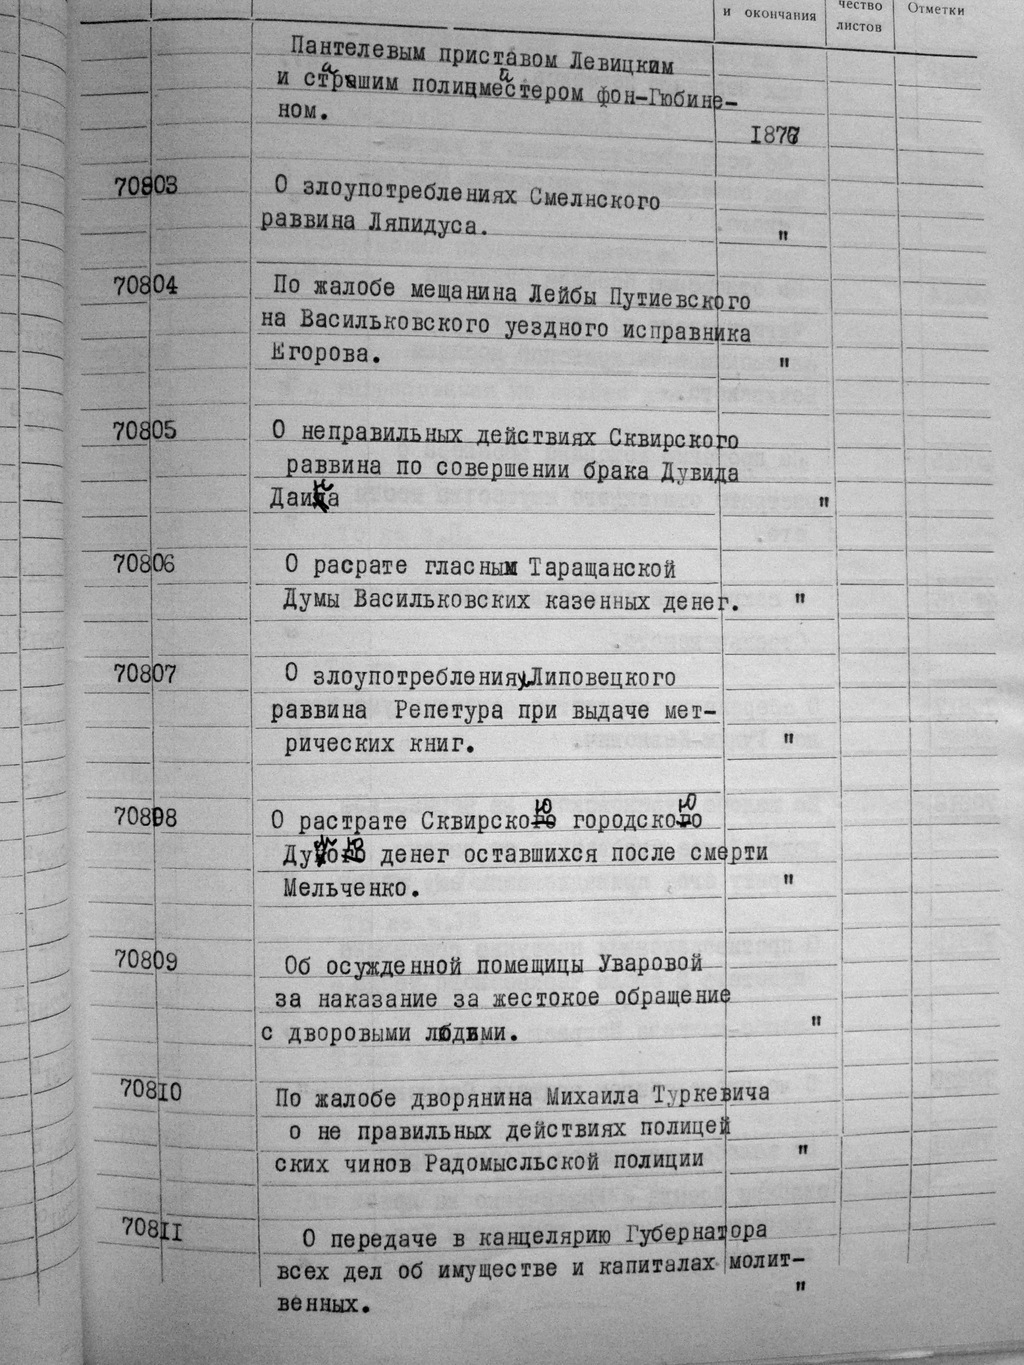 и окончания
чество
листов
Отметки
Пантелевым приставом Левицким
и страшим полицместером фон-Гюбине-
ном.
1877
70803 О злоупотреблениях Смелнского
раввина Ляпидуса.
"
70804 По жалобе мещанина Лейбы Путиевского
на Васильковского уездного исправника
Егорова. "
70805 О неправильных действиях Сквирского
раввина по совершении брака Дувида
Даина "
70806 О расрате гласным Таращанской
Думы Васильковских казенных денег. "
70807 О злоупотреблениях Липовецкого
раввина Репетура при выдаче мет-
рических книг. "
70808 О растрате Сквирскою городскою
Думою денег оставшихся после смерти
Мельченко. "
70809 Об осужденной помещицы Уваровой
за наказание за жестокое обращение
с дворовыми людьми. "
70810 По жалобе дворянина Михаила Туркевича
о не правильных действиях полицей
ских чинов Радомысльской полиции "
70811 О передаче в канцелярию Губернатора
всех дел об имуществе и капиталах молит-
венных. "